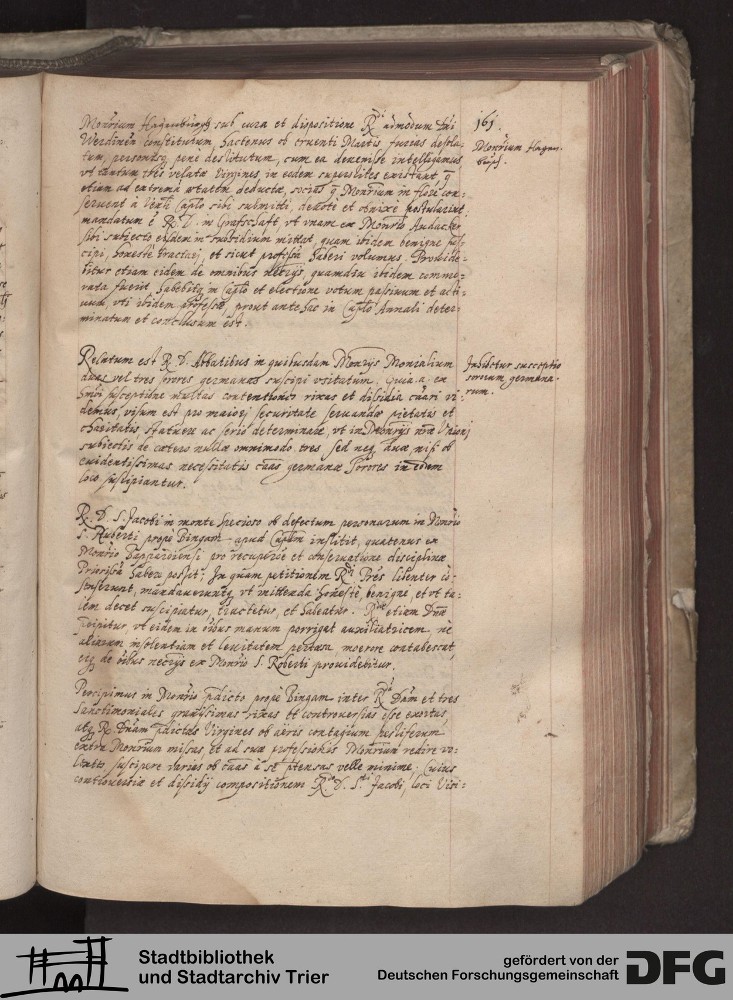 161.
Monrium Hagen-
busch.
Monrium Hagenbusch sub cura et dispositione Rdi admodum Dni
Werdinen constitutum, hactenus ob cruenti Martis furias desola-
tum, personisq pene destitutum, cum ea deuenisse intelligamus
vt tantum tres velatae Virgines in eodem superstites existant, q
etiam ad extremam aetatem deductae, socias q Monrium in flore con-
seruent a Vnli Caplo sibi submitti, deuote et obnixe postularint
mandatum e R. D. in Grafschaft, vt vnam ex Monrio Audacker
sibi subiecto eisdem in subsidium mittat, quam ibidem benigne sus-
cipi, honeste tractari, et sicut professa haberi volumus. Prouide-
bitur etiam eidem de omnibus necrijs, quamdiu ibidem commo-
rata fuerit, habebitq in Caplo et electione votum passiuum et acti-
uum, vti ibidem professae, prout ante hac in Caplo Annali deter-
minatum et conclusum est.
Relatum est R. D. Abbatibus in quibusdam Monrijs Monialium
duas vel tres sorores germanas suscipi vsitatum. Quia a. ex
hmoi susceptione multas contentiones rixas et dissidia euari vi-
demus, visum est pro maiori securitate seruandae pietatis et
charitatis statuere ac serio determinare, vt in Monrijs nrae Vnioni
subiectis de caetero nullae omnimodo tres sed neq duae nisi ob
euidentissimas necessitatis causas germanae sorores in eodem
loco suscipiantur.
Inhibetur susceptio
sororum germana-
rum.
R. D. S. Jacobi in monte specioso ob defectum personarum in Monrio
S. Ruberti prope Bingam apud Caplum institit, quatenus ex
Monrio pro recuperatione et conseruatione disciplinae
Priorissam habere possit; In quam petitionem Rdi Pres libenter co-
senserunt, mandaueruntq vt mittenda honeste, benigne et vt ta-
lem decet suscipiatur, tractetur, et habeatur. Rdae etiam Dnae
vt eidem in oibus manum porrigat auxiliatricem ne
aliarum insolentiam et leuitatem pertaesa moerore contabescat,
eiq de oibus necrijs ex Monrio S. Roberti prouidebitur.
Percipimus in Monrio pdicto prope Bingam inter Rdam Dnam et tres
Sanctimoniales grauissimas rixas et controuersias esse exortas,
atq R. Dnam pdictas Virgines ob aeris contagium pestiferum
extra Monrium missas, et ad suae professionis Monrium redire vo-
lentes suscipere varias ob causas a se ptensas velle minime. Cuius
controuersiae et dissidij compositionem Rdo D. Sti Jacobi, loci Visi-
Stadtbibliothek
und Stadtarchiv Trier
gefördert von der
Deutschen Forschungsgemeinschaft
DFG